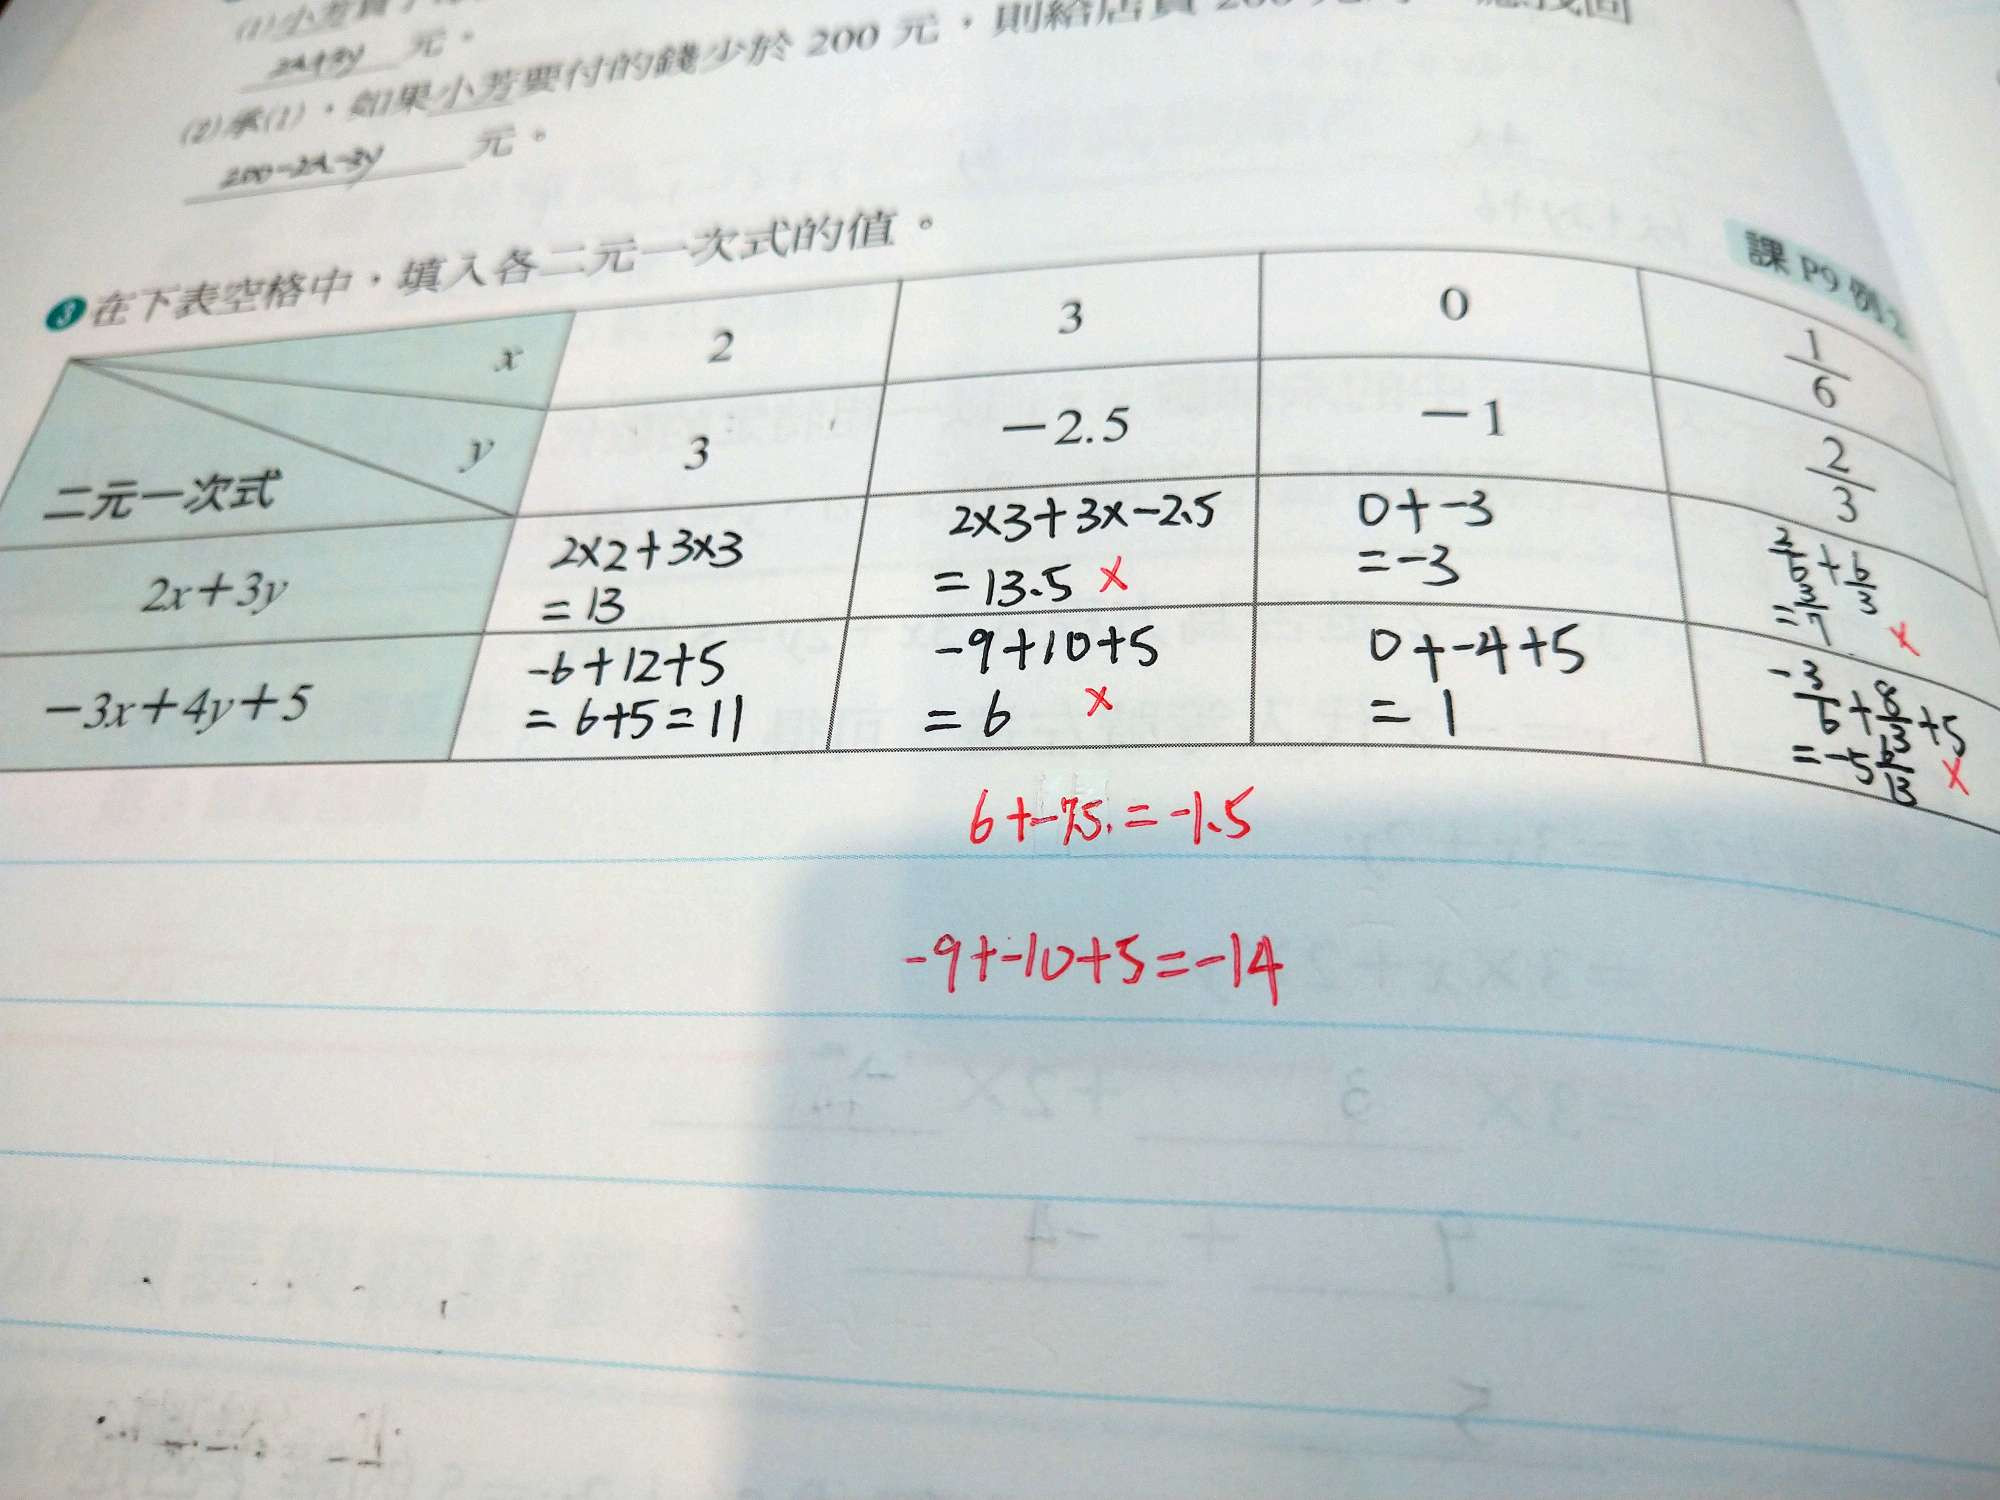 (1)小芳買
2x+3y 元。
(2)承(1),如果小芳要付的錢少於 200 元,則給店員 200 元
200-2x-3y 元。
課 P9 例2
3 在下表空格中,填入各二元一次式的值。
x 2 3 0 1/6
y 3 -2.5 -1 2/3
二元一次式
2x+3y
2×2+3×3
=13
2×3+3×-2.5
=13.5 ×
0+-3
=-3
2/6+6/3
=3/7 ×
-3x+4y+5
-6+12+5
=6+5=11
-9+10+5
=6 ×
0+-4+5
=1
-3/6+8/3+5
=-5 6/13 ×
6+-7.5.=-1.5
-9+-10+5=-14